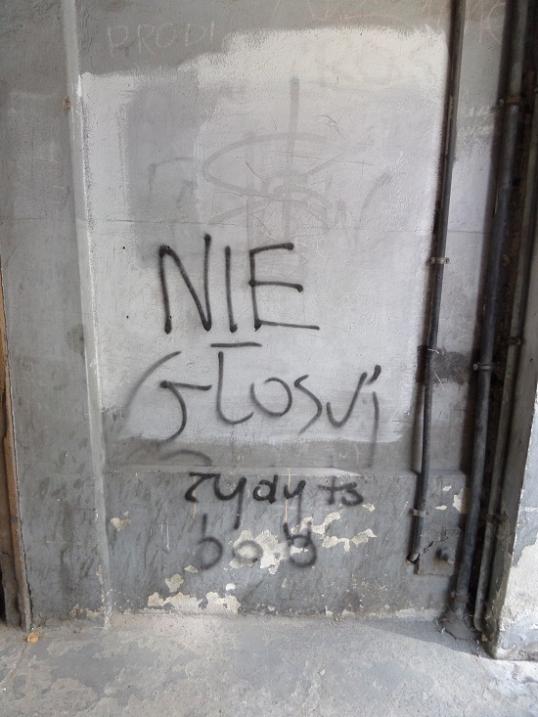 PRODI
NIE
GŁOSUJ
zydy ts
bob